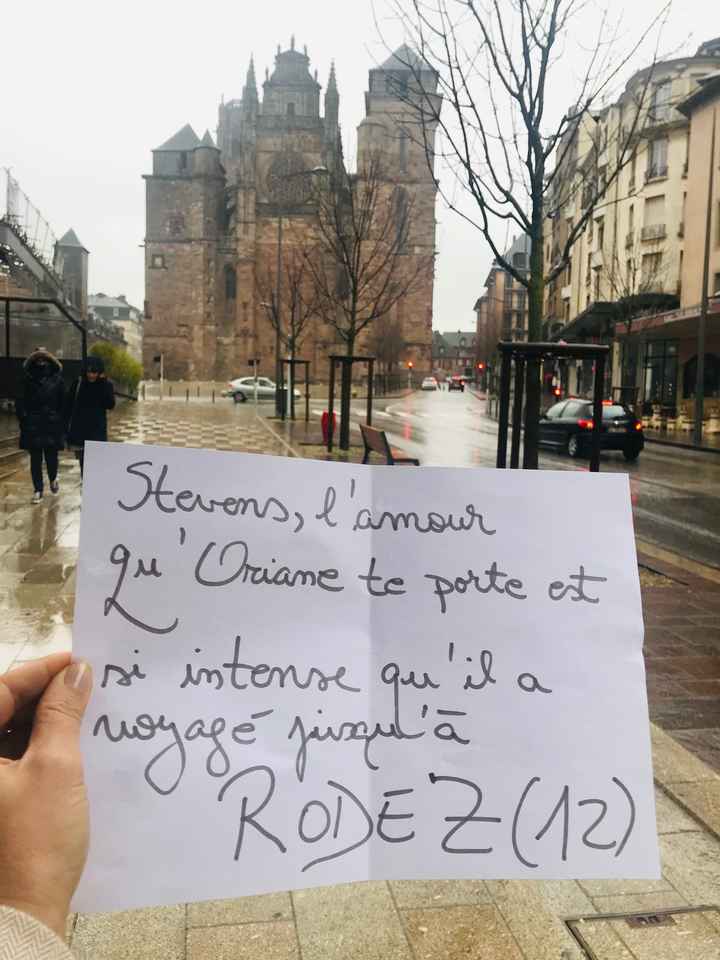 Stevens, l'amour
qu'Oriane te porte est
si intense qu'il a
voyagé jusqu'à
RODEZ (12)